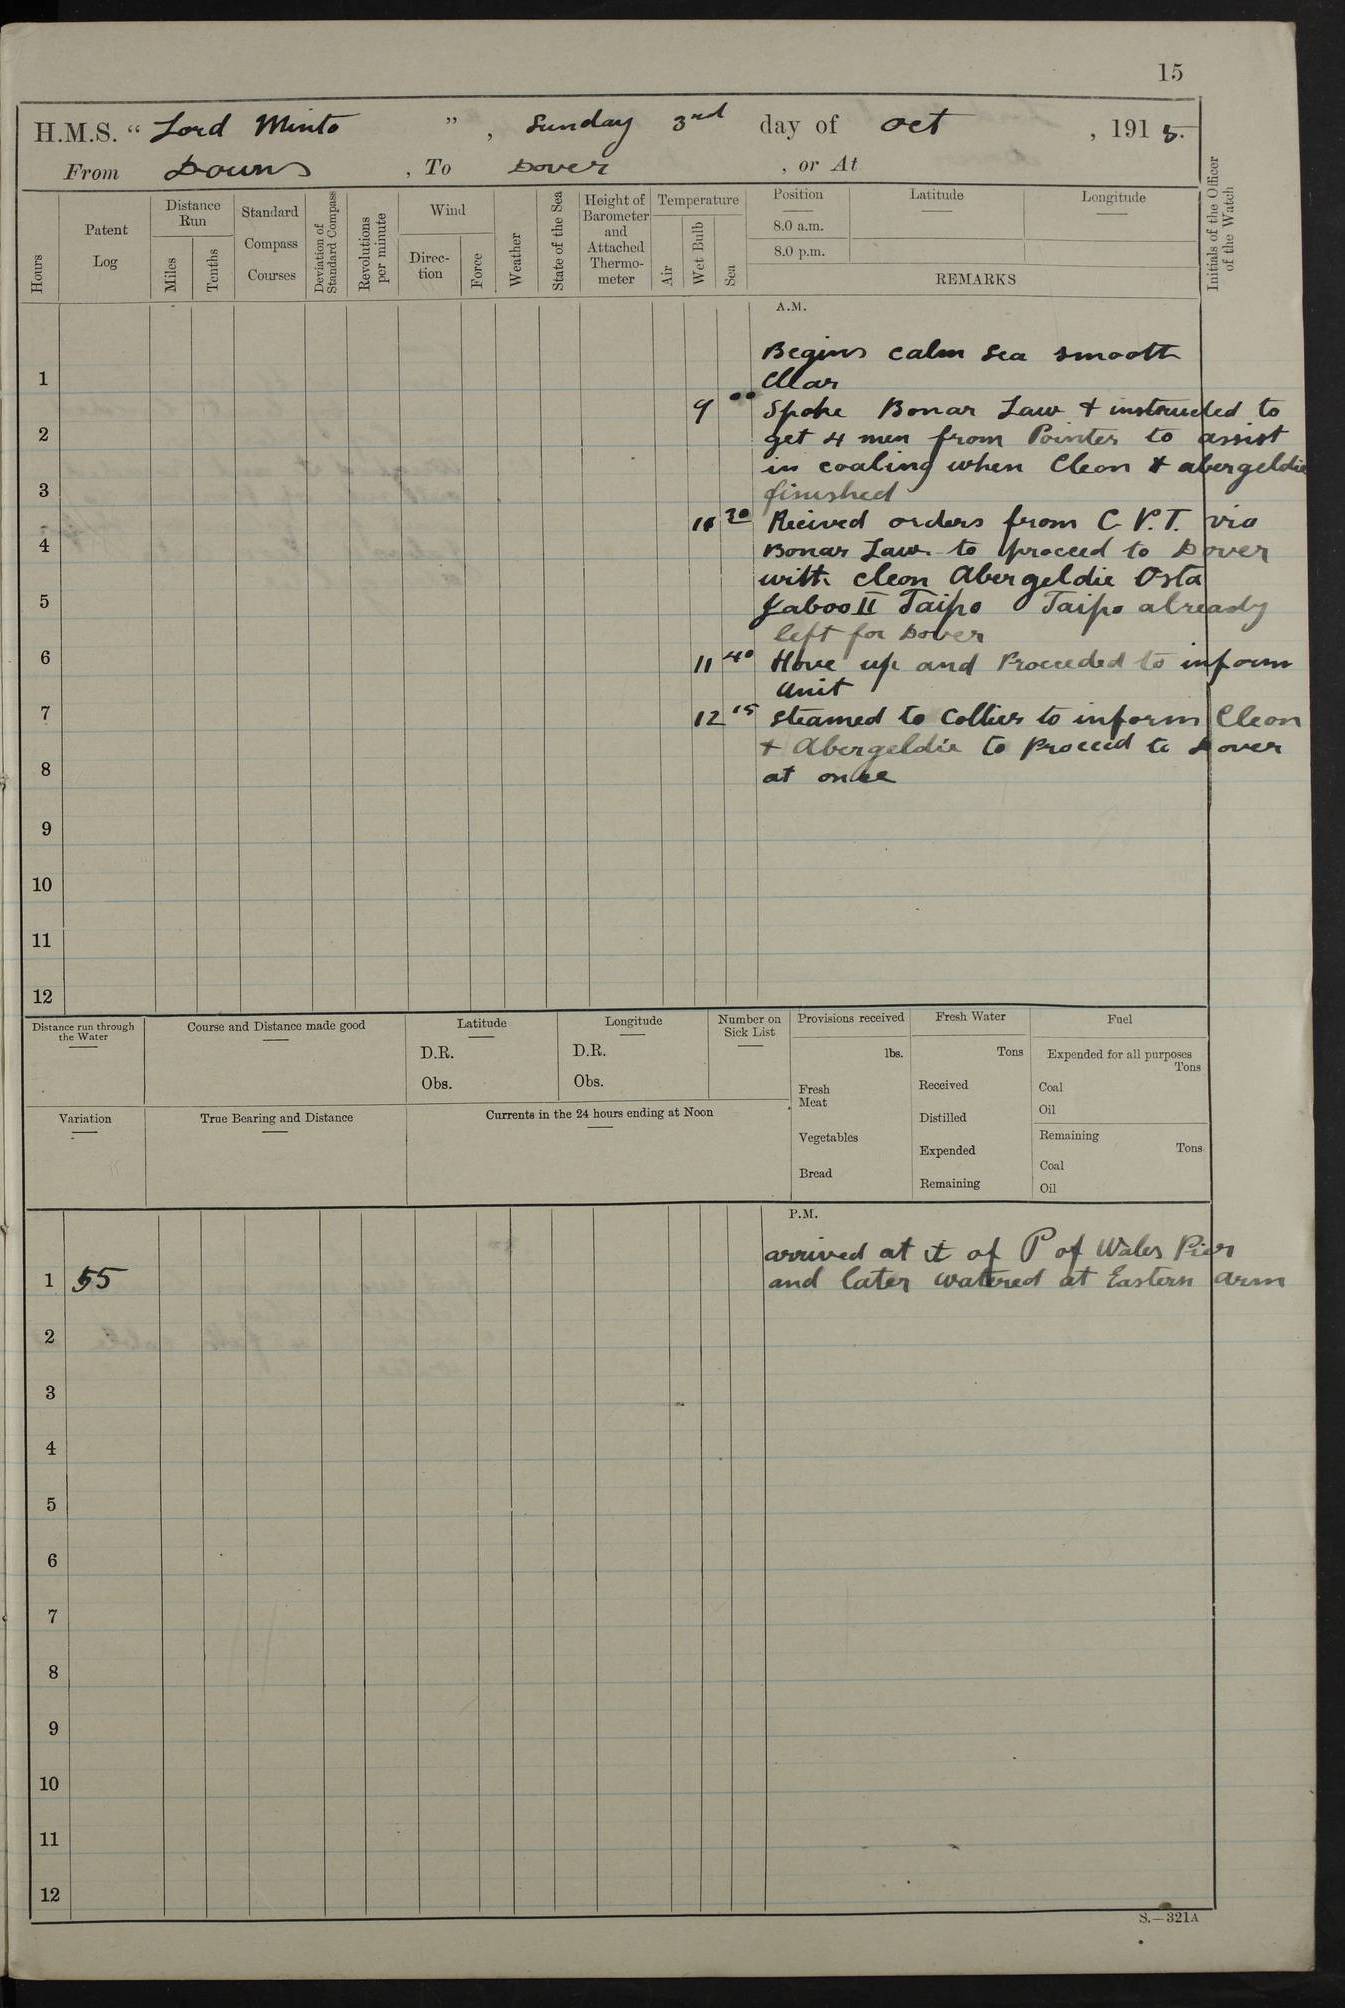 15
H.M.S. “ Lord Minto ” , Sunday 3rd day of Oct , 1915.
From Downs , To Dover , or At
Hours
Patent Log
Distance Run
Miles
Tenths
Standard Compass Courses
Deviation of Standard Compass
Revolutions per minute
Wind
Direction
Force
Weather
State of the Sea
Height of Barometer and Attached Thermometer
Temperature
Air
Wet Bulb
Sea
Position
8.0 a.m.
8.0 p.m.
Latitude
Longitude
REMARKS
Initials of the Officer of the Watch
A.M.
Begins calm sea smooth
1 Clear
9 00 Spoke Bonar Law & instructed to
2 get 4 men from Pointer to assist
in coaling when Cleon & abergeldie
3 finished
30 Recived orders from C.P.T. via
4 Bonar Law to proceed to Dover
with Cleon Abergeldie Osta
5 Yaboo II Taipo Taipo already
left for Dover
6 11 40 Hove up and Proceeded to inform
unit
7 12 15 Steamed to Colliers to inform Cleon
& Abergeldie to Proceed to Dover
8 at once
9
10
11
12
Distance run through the Water
Course and Distance made good
Latitude
D.R.
Obs.
Longitude
D.R.
Obs.
Number on Sick List
Provisions received
lbs.
Fresh Meat
Vegetables
Bread
Fresh Water
Tons
Received
Distilled
Expended
Remaining
Fuel
Expended for all purposes
Tons
Coal
Oil
Remaining
Tons
Coal
Oil
Variation
True Bearing and Distance
Currents in the 24 hours ending at Noon
P.M.
arrived at it of P of Wales Pier
1 55 and later watered at Eastern arm
2
3
4
5
6
7
8
9
10
11
12
S.—321A